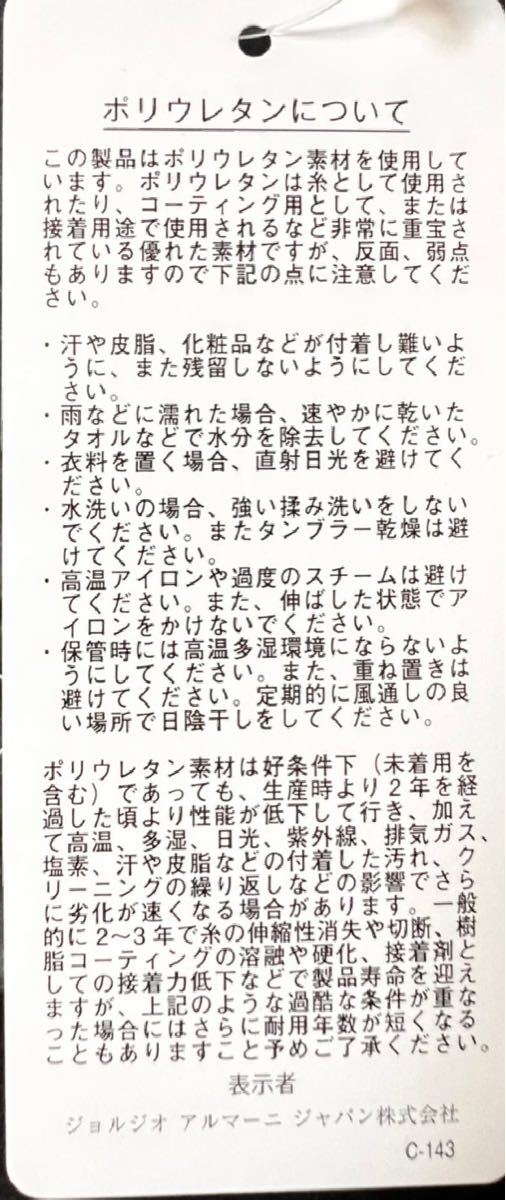 ポリウレタンについて
この製品はポリウレタン素材を使用して
います。ポリウレタンは糸として使用さ
れたり、コーティング用として、または
接着用途で使用されるなど非常に重宝さ
れている優れた素材ですが、反面、弱点
もありますので下記の点に注意してくだ
さい。
・汗や皮脂、化粧品などが付着し難いよ
うに、また残留しないようにしてくだ
さい。
・雨などに濡れた場合、速やかに乾いた
タオルなどで水分を除去してください。
・衣料を置く場合、直射日光を避けてく
ださい。
・水洗いの場合、強い揉み洗いをしない
でください。またタンブラー乾燥は避
けてください。
・高温アイロンや過度のスチームは避け
てください。また、伸ばした状態でア
イロンをかけないでください。
・保管時には高温多湿環境にならないよ
うにしてください。また、重ね置きは
避けてください。定期的に風通しの良
い場所で日陰干しをしてください。
ポリウレタン素材は好条件下（未着用を
含む）であっても、生産時より２年を経
過した頃より性能が低下して行き、加え
て高温、多湿、日光、紫外線、排気ガス、
塩素、汗や皮脂などの付着した汚れ、ク
リーニングの繰り返しなどの影響でさら
に劣化が速くなる場合があります。一般
的に２〜３年で糸の伸縮性消失や切断、樹
脂コーティングの溶融や硬化、接着剤と
しての接着力低下などで製品寿命を迎え
ますが、上記のような過酷な条件が重な
った場合にはさらに耐用年数が短くなる
こともありますこと予めご了承ください。
表示者
ジョルジオ アルマーニ ジャパン株式会社
C-143